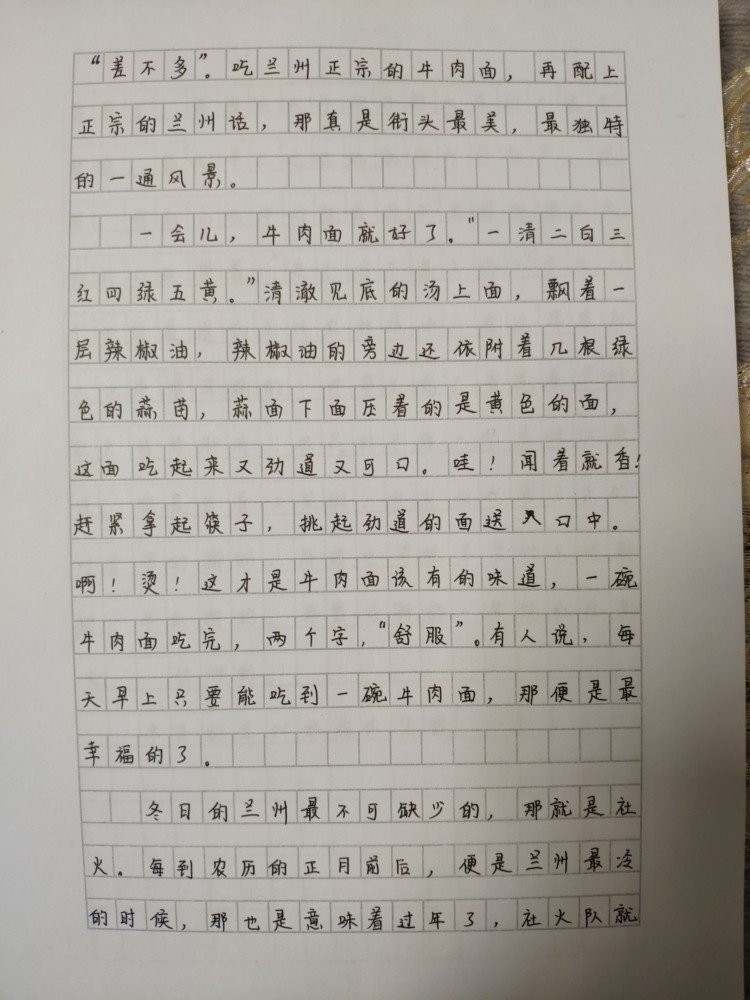 “差不多”。吃兰州正宗的牛肉面，再配上
正宗的兰州话，那真是街头最美，最独特
的一通风景。
一会儿，牛肉面就好了。“一清二白三
红四绿五黄。”清澈见底的汤上面，飘着一
层辣椒油，辣椒油的旁边还依附着几根绿
色的蒜苗，蒜面下面压着的是黄色的面，
这面吃起来又劲道又可口。哇！闻着就香！
赶紧拿起筷子，挑起劲道的面送入口中。
啊！烫！这才是牛肉面该有的味道，一碗
牛肉面吃完，两个字，“舒服”。有人说，每
天早上只要能吃到一碗牛肉面，那便是最
幸福的了。
冬日的兰州最不可缺少的，那就是社
火。每到农历的正月前后，便是兰州最冷
的时候，那也是意味着过年了，社火队就